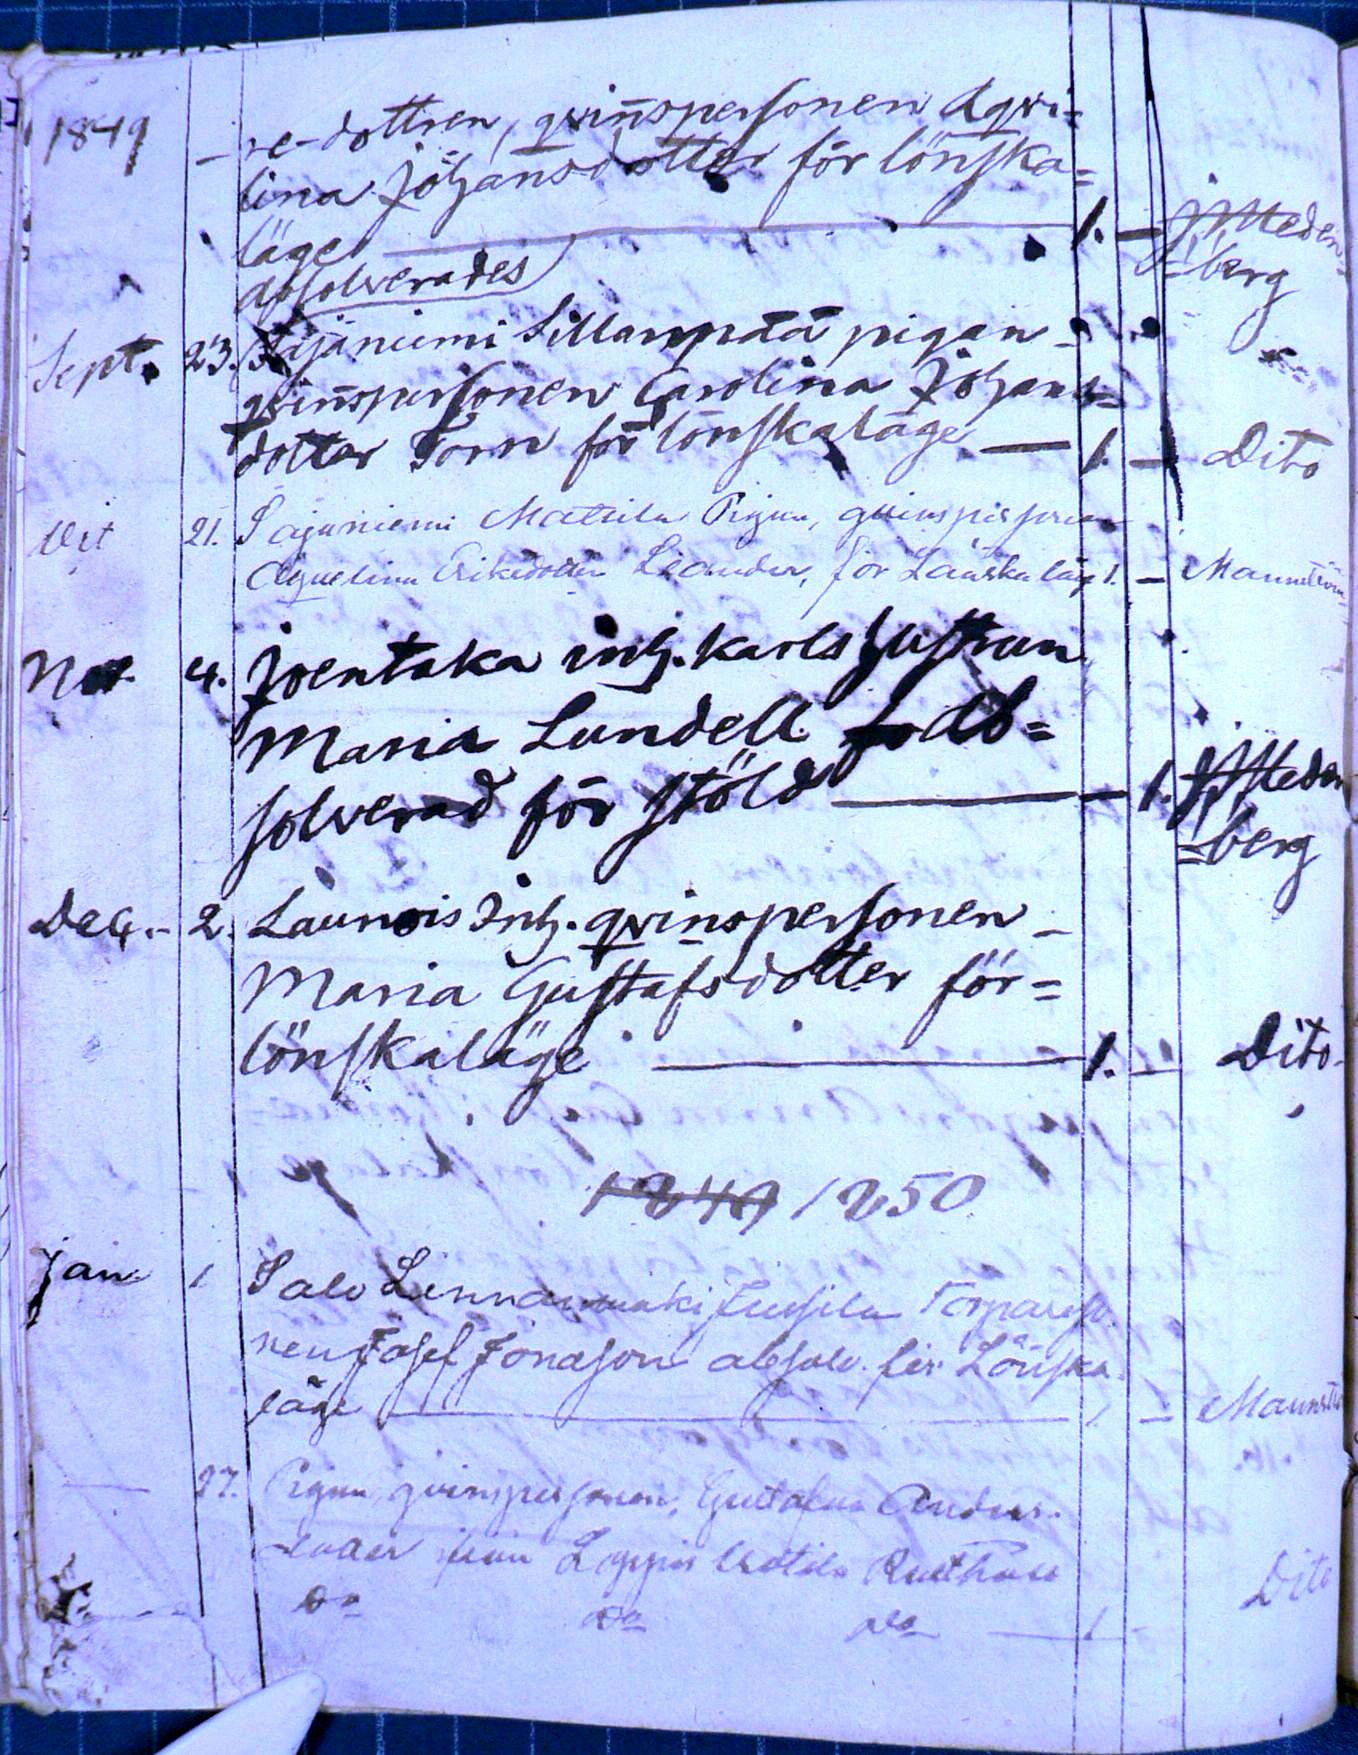 1849 – re-dottren, qvinspersonen Aqvi=
lina Johansdotter för lönska=
läge — 1. — Meden=
=berg
absolverades
Sept. 23. Pajuniemi Sillanpää pigan –
qvinspersonen Carolina Johans=
dotter Torn för lönskaläge — 1. — Dito
Oct 21. Pajuniemi Mattila Pigan, qvinspersonen
Aqvelina Eriksdotter Leander, för Länskaläg 1. –
4. Joentaka inh. karls hustrun
Maria Lundell Ab=
solverad för stöld — 1. Meden
=berg
Dec. – 2. Launois Inh. qvinspersonen –
Maria Gustafsdotter för=
lönskaläge — 1. — Dito.
1849 1850
Jan. 1 Salo Jussila Torpareso
nen Josef Jonason absolv. för Lönska
läge — 1 —
— 27. Pigan, qvinspersonen, Gustafva Anders.
från Loppis
Do Do Do — 1 – Dito